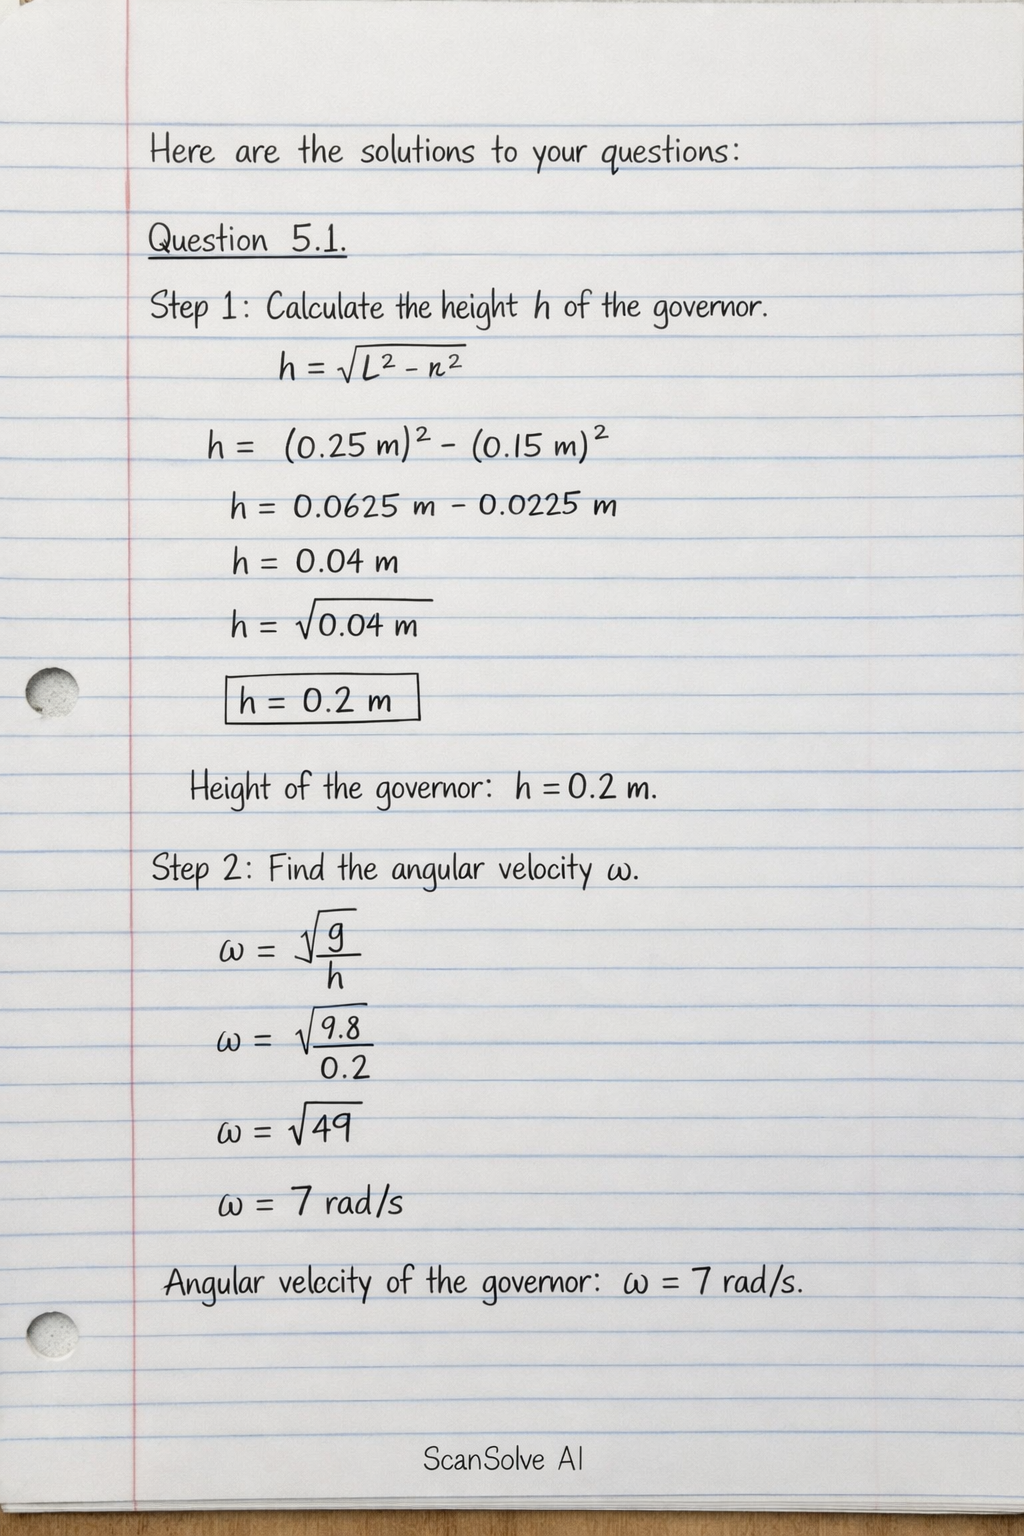 Here are the solutions to your questions:
Question 5.1.
Step 1: Calculate the height h of the governor.
h = √(L² - r²)
h = (0.25 m)² - (0.15 m)²
h = 0.0625 m - 0.0225 m
h = 0.04 m
h = √0.04 m
h = 0.2 m
Height of the governor: h = 0.2 m.
Step 2: Find the angular velocity ω.
ω = √g/h
ω = √9.8/0.2
ω = √49
ω = 7 rad/s
Angular velccity of the governor: ω = 7 rad/s.
ScanSolve AI